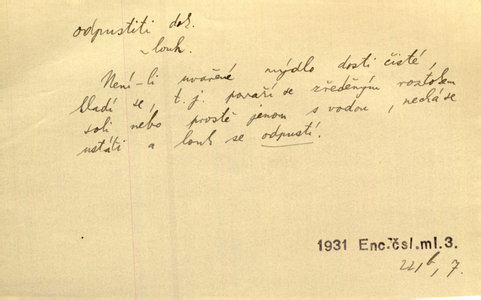 odpustiti dok.
~louh.
Není-li uvařené mýdlo dosti čisté,
hladí se, t. j. povaří se zředěným roztokem
soli nebo prostě jenom s vodou, nechá se
ustáti a louh se odpustí.
1931 Enc.čsl.ml.3.
221b, 7.